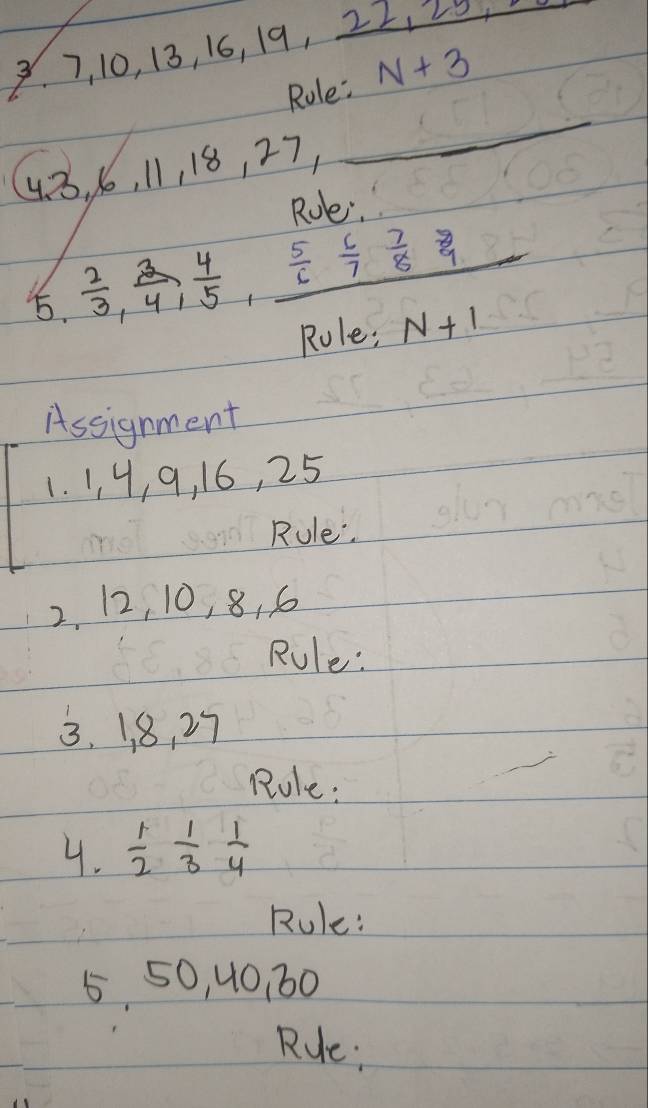 3. 7, 10, 13, 16, 19, 22, 25,
Rule: N+3
4. 3, 6, 11, 18, 27,
Rule:
5. 2/3, 3/4, 4/5, 5/6 6/7 7/8 8/9
Rule: N+1
Assignment
1. 1, 4, 9, 16, 25
Rule:
2. 12, 10, 8, 6
Rule:
3. 1, 8, 27
Rule:
4. 1/2 1/3 1/4
Rule:
5. 50, 40, 30
Rule: